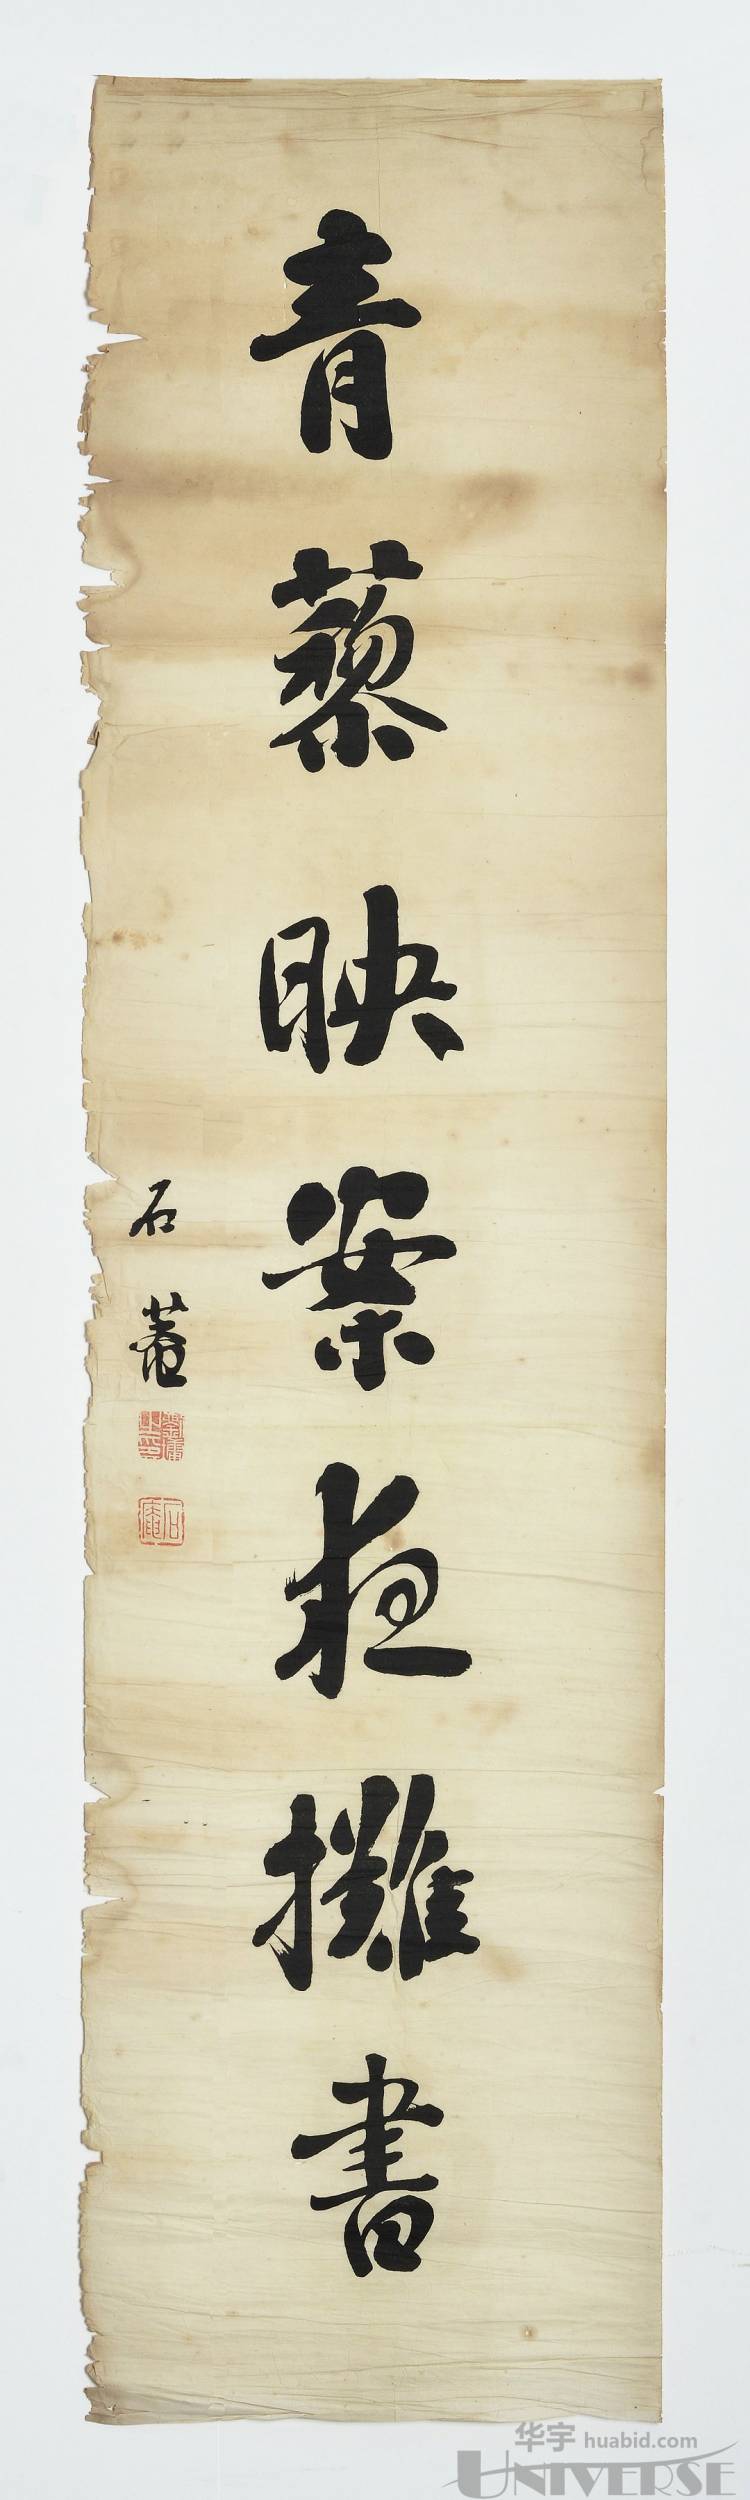 青藜映案夜攤書
石菴
劉墉之印
石庵
华宇 huabid.com
UNIVERSE